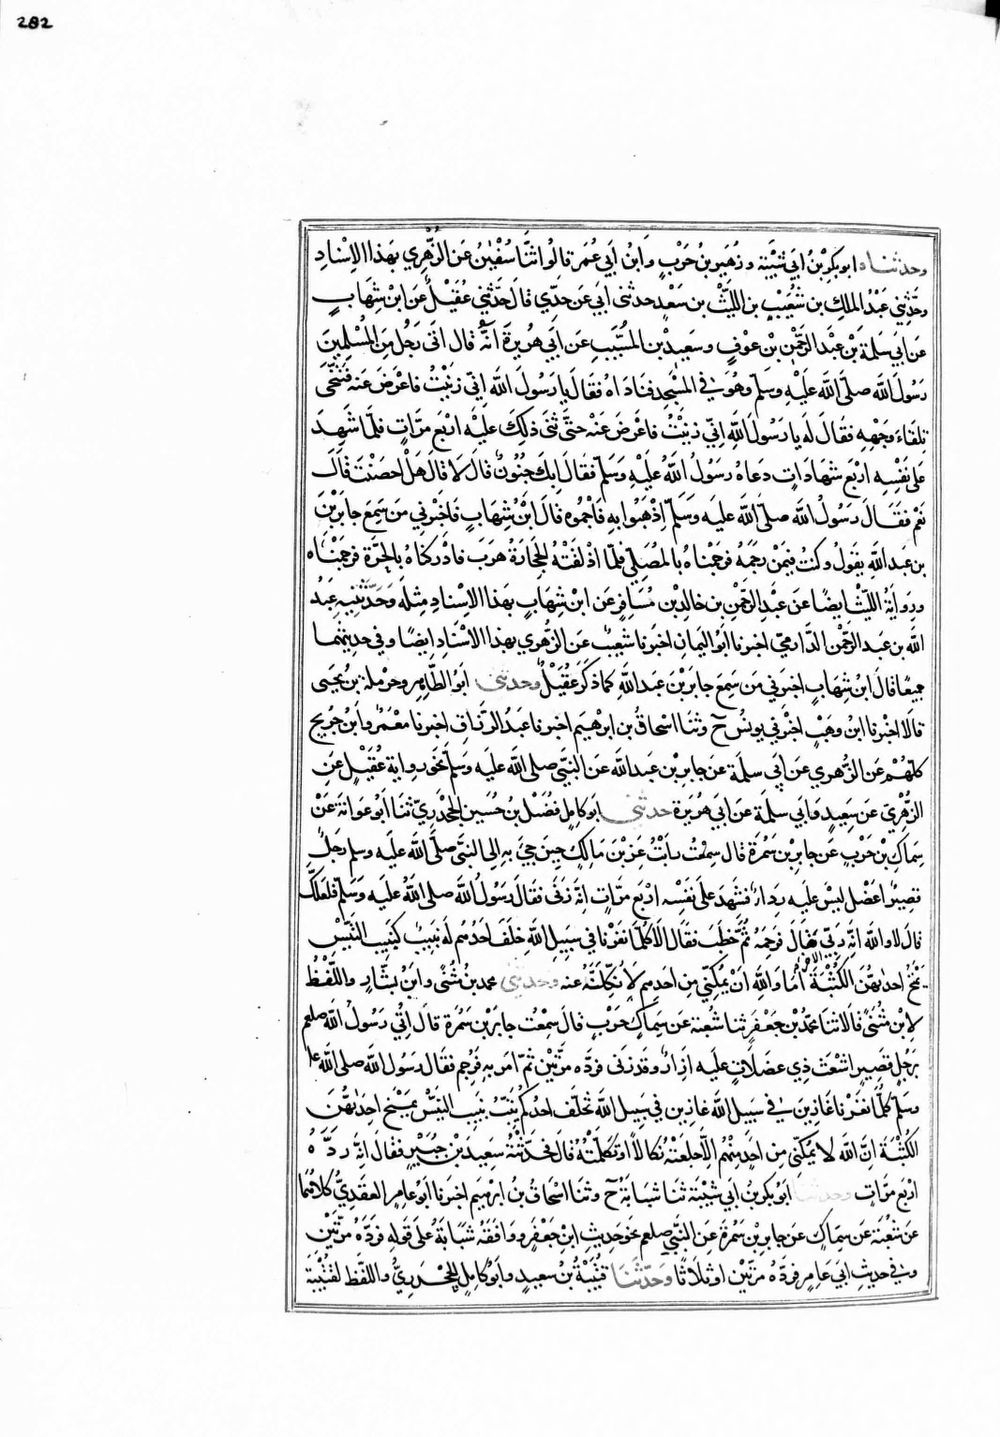 282
وحدثناه ابو بكر بن ابي شيبة وزهير بن حرب وابن ابي عمر قالوا ثنا سفين عن الزهري بهذا الاسناد
وحدثني عبد الملك بن شعيب بن الليث بن سعد حدثني ابي عن جدي قال حدثني عقيل عن ابن شهاب
عن ابي سلمة بن عبد الرحمن بن عوف وسعيد بن المسيب عن ابي هريرة انه قال اتى رجل من المسلمين
رسول الله صلى الله عليه وسلم وهو في المسجد فناداه فقال يا رسول الله اني زنيت فاعرض عنه فتنحى
تلقاء وجهه فقال له يا رسول الله اني زنيت فاعرض عنه حتى ثنى ذلك عليه اربع مرات فلما شهد
على نفسه اربع شهادات دعاه رسول الله عليه وسلم فقال ابك جنون قال لا قال هل احصنت قال
نعم فقال رسول الله صلى الله عليه وسلم اذهبوا به فاجموه قال ابن شهاب فاخبرني من سمع جابر بن
بن عبد الله يقول وكنت فيمن رجمه فرجمناه بالمصلى فلما اذلقته الحجارة هرب فادركناه بالحرة فرجمناه
ورواية الليث ايضا عن عبد الرحمن بن خالد بن مسافر عن ابن شهاب بهذا الاسناد مثله وحدثنيه عبد
الله بن عبد الرحمن الدارمي اخبرنا ابو اليمان اخبرنا شعيب عن الزهري بهذا الاسناد ايضا وفي حديثهما
جميعا قال ابن شهاب اخبرني من سمع جابر بن عبد الله كما ذكر عقيل وحدثني ابو الطاهر وحرملة بن يحيى
قالا اخبرنا ابن وهب اخبرني يونس ح وثنا اسحاق بن ابرهيم اخبرنا عبد الرزاق اخبرنا معمر وابن جريج
كلهم عن الزهري عن ابي سلمة عن جابر بن عبد الله عن النبي صلى الله عليه وسلم نحو رواية عقيل عن
الزهري عن سعيد وابي سلمة عن ابي هريرة حدثني ابو كامل فضيل بن حسين الجحدري ثنا ابو عوانة عن
سماك بن حرب عن جابر بن سمرة قال رايت عز بن مالك حين جيء به الى النبي صلى الله عليه وسلم رجل
قصير اعضل ليس عليه رداء فشهد على نفسه اربع مرات انه زنى فقال رسول الله صلى الله عليه وسلم فلعلك
قال لا والله انه زنى الاخر قال فرجمه ثم خطب فقال الا كلما نفرنا في سبيل الله خلف احدهم له نبيب كنبيب التيس
يمنح احدهن الكثبة اما والله ان يمكني من احدهم لانكلنه عنه وحدثني محمد بن مثنى وابن بشار واللفظ
لابن مثنى قالا ثنا محمد بن جعفر ثنا شعبة عن سماك بن حرب قال سمعت جابر بن سمرة قال اتي رسول الله صلعم
برجل قصير اشعث ذي عضلات عليه ازار وقد زنى فرده مرتين ثم امر به فرجم فقال رسول الله صلى الله عليه
وسلم كلما نفرنا غازين في سبيل الله غازين في سبيل الله تخلف احدكم ينب نبيب التيس يمنح احدهن
الكثبة ان الله لا يمكني من احد منهم الا جعلته نكالا او نكلته قال فحدثته سعيد بن جبير فقال انه رده
اربع مرات وحدثنا ابو بكر بن ابي شيبة ثنا شبابة ح وثنا اسحاق بن ابرهيم اخبرنا ابو عامر العقدي كلاهما
عن شعبة عن سماك عن جابر بن سمرة عن النبي صلعم نحو حديث ابن جعفر ووافقه شبابة على قوله فرده مرتين
وفي حديث ابي عامر فرده مرتين او ثلاثا وحدثنا قتيبة بن سعيد وابو كامل الجحدري واللفظ لقتيبة